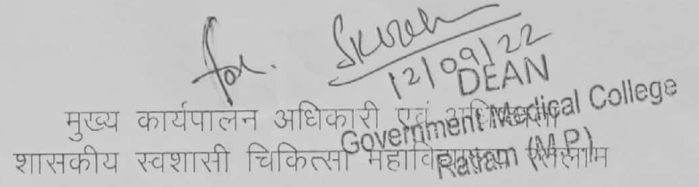 for.
12/09/22
DEAN
Government Medical College
Ratlam (M.P.)
मुख्य कार्यपालन अधिकारी एवं
शासकीय स्वशासी चिकित्सा महाविद्यालय रतलाम